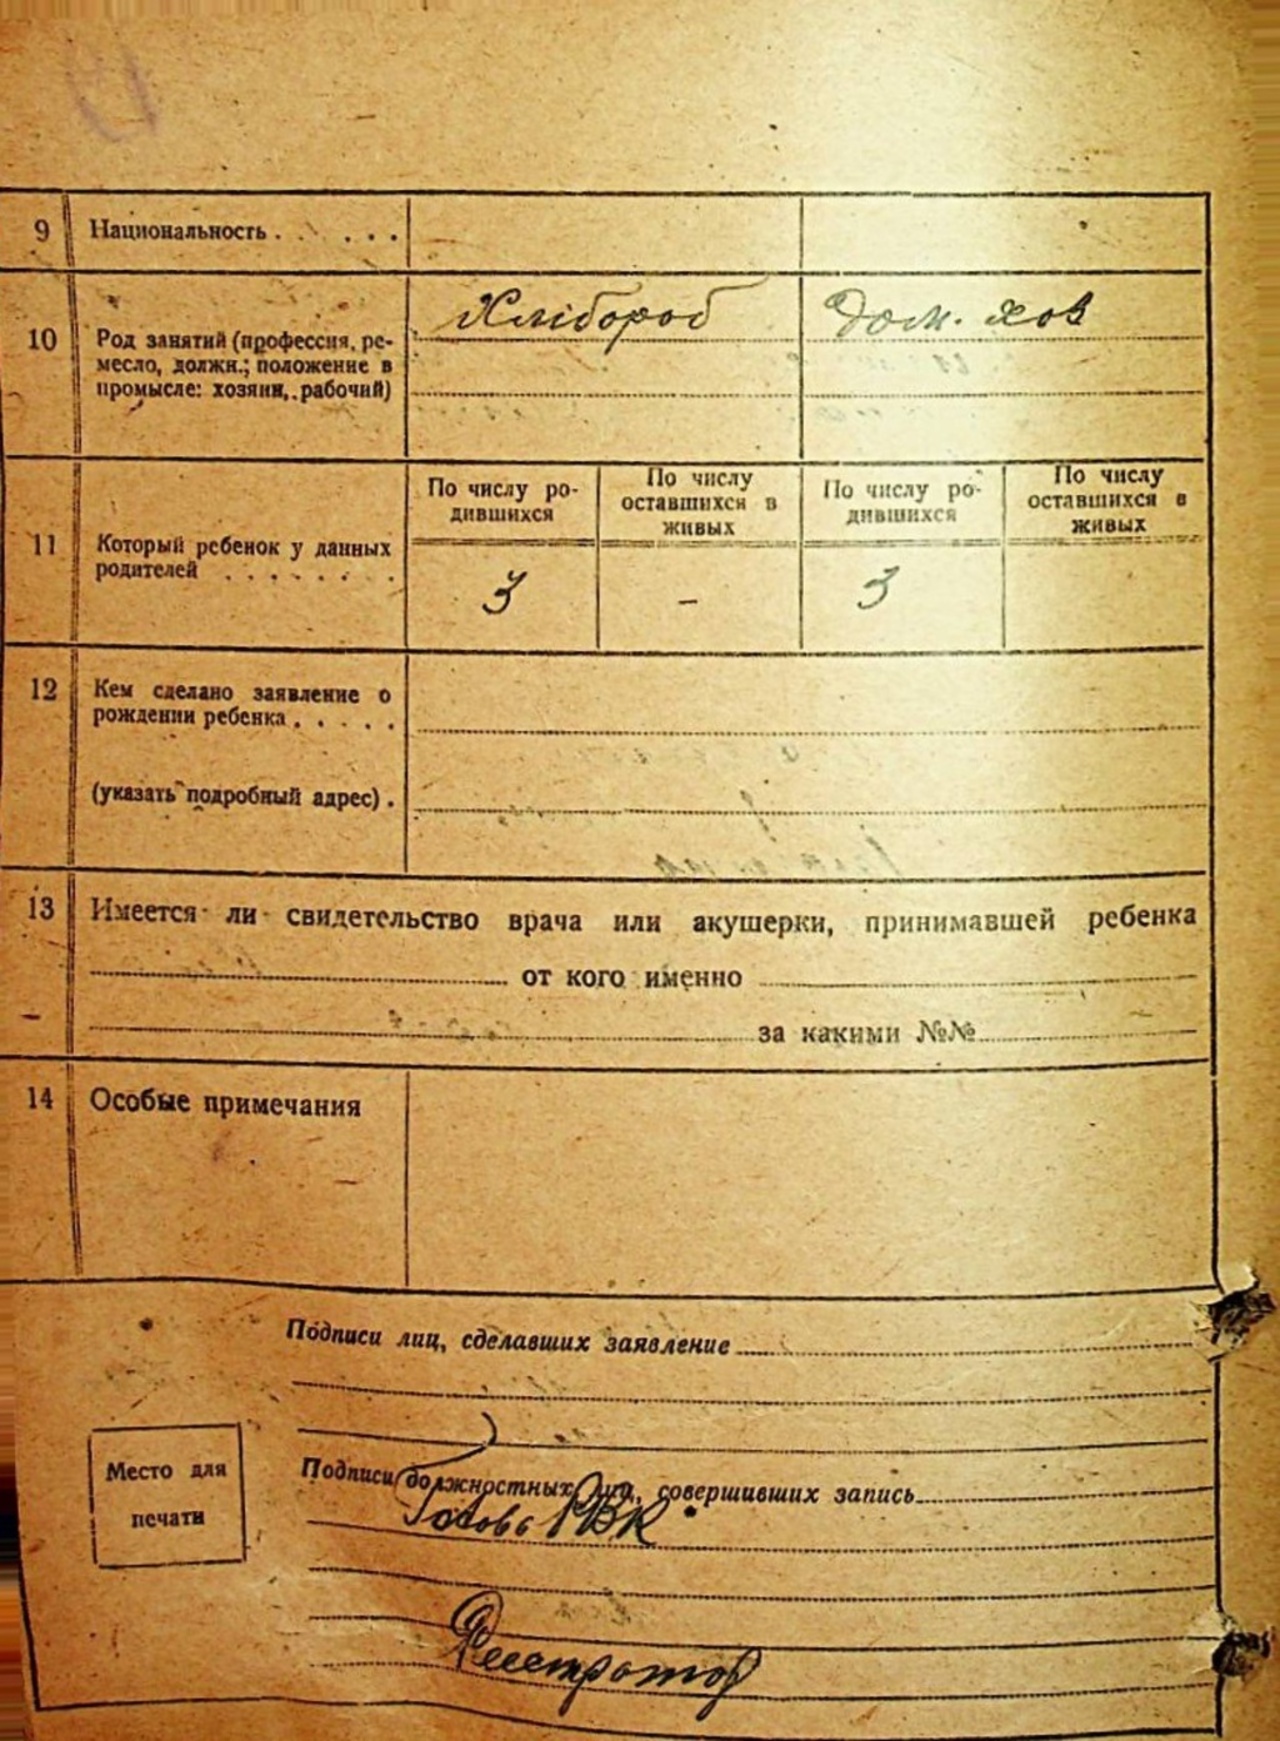 9 Национальность . . . . . .
10 Род занятий (профессия, ре-
месло, должн.; положение в
промысле: хозяин, рабочий)
Хлібороб
дом. хоз
11 Который ребенок у данных
родителей . . . . . . .
По числу ро-
дившихся
По числу
оставшихся в
живых
По числу ро-
дившихся
По числу
оставшихся в
живых
3 - 3
12 Кем сделано заявление о
рождении ребенка . . . . .
(указать подробный адрес) .
13 Имеется ли свидетельство врача или акушерки, принимавшей ребенка
от кого именно
за какими №№
14 Особые примечания
Подписи лиц, сделавших заявление
Место для
печати
Подписи должностных лиц, совершивших запись
Голова РВК
Реестратор